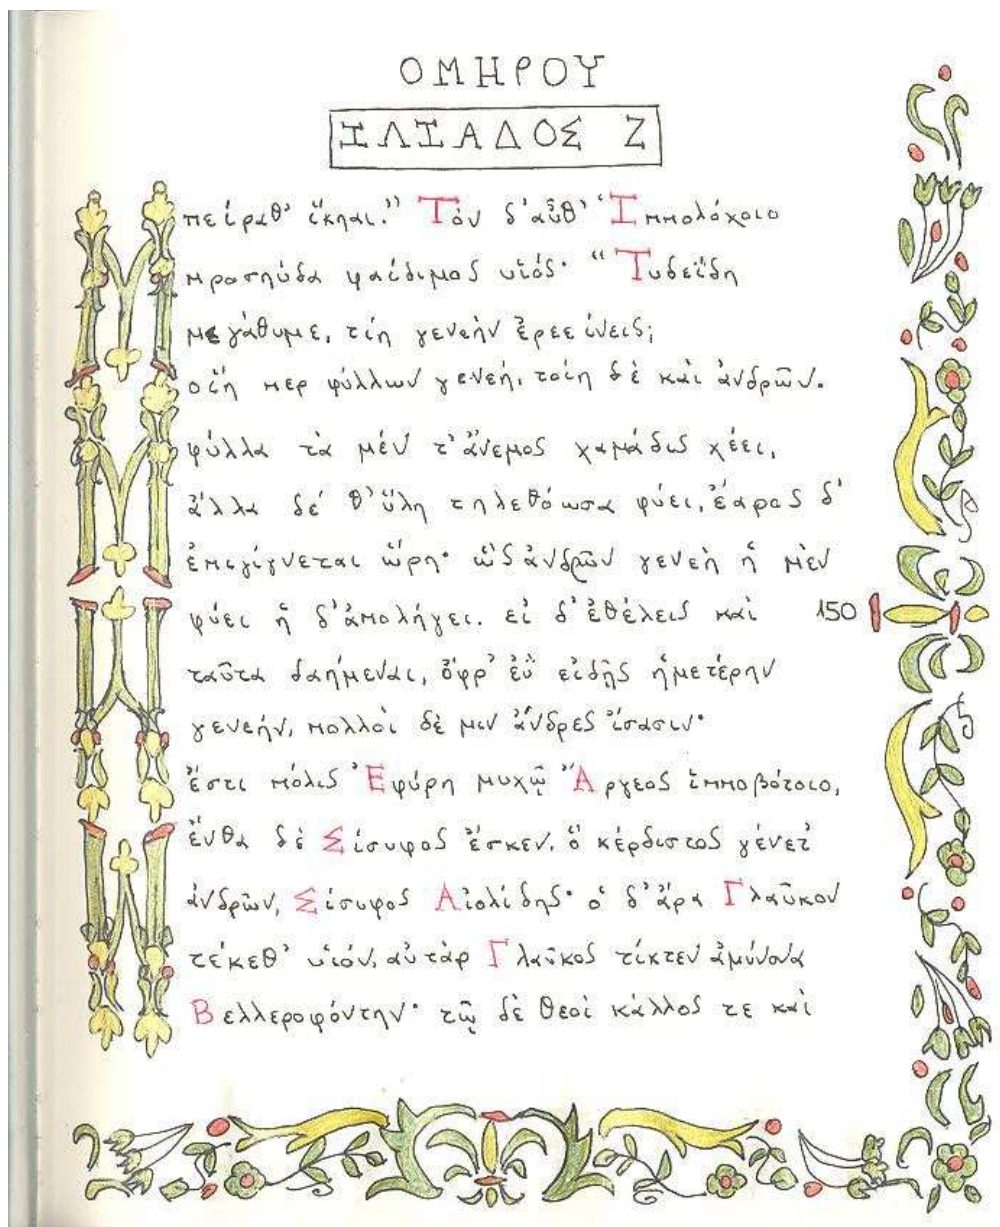 ΟΜΗΡΟΥ
ΙΛΙΑΔΟΣ Ζ
πείραθ' ἵκηαι." Τὸν δ' αὖθ' Ἱππολόχοιο
προσηύδα φαίδιμος υἱός· "Τυδεΐδη
μεγάθυμε, τίη γενεὴν ἐρεείνεις;
οἵη περ φύλλων γενεή, τοίη δὲ καὶ ἀνδρῶν.
φύλλα τὰ μέν τ' ἄνεμος χαμάδις χέει,
ἄλλα δέ θ' ὕλη τηλεθόωσα φύει, ἔαρος δ'
ἐπιγίγνεται ὥρη· ὣς ἀνδρῶν γενεὴ ἣ μὲν
φύει ἣ δ' ἀπολήγει. εἰ δ' ἐθέλεις καὶ 150
ταῦτα δαήμεναι, ὄφρ' ἐῢ εἰδῇς ἡμετέρην
γενεήν, πολλοὶ δέ μιν ἄνδρες ἴσασιν·
ἔστι πόλις Ἐφύρη μυχῷ Ἄργεος ἱπποβότοιο,
ἔνθα δὲ Σίσυφος ἔσκεν, ὃ κέρδιστος γένετ'
ἀνδρῶν, Σίσυφος Αἰολίδης· ὁ δ' ἄρα Γλαῦκον
τέκεθ' υἱόν, αὐτὰρ Γλαῦκος τίκτεν ἀμύμονα
Βελλεροφόντην· τῷ δὲ θεοὶ κάλλος τε καὶ